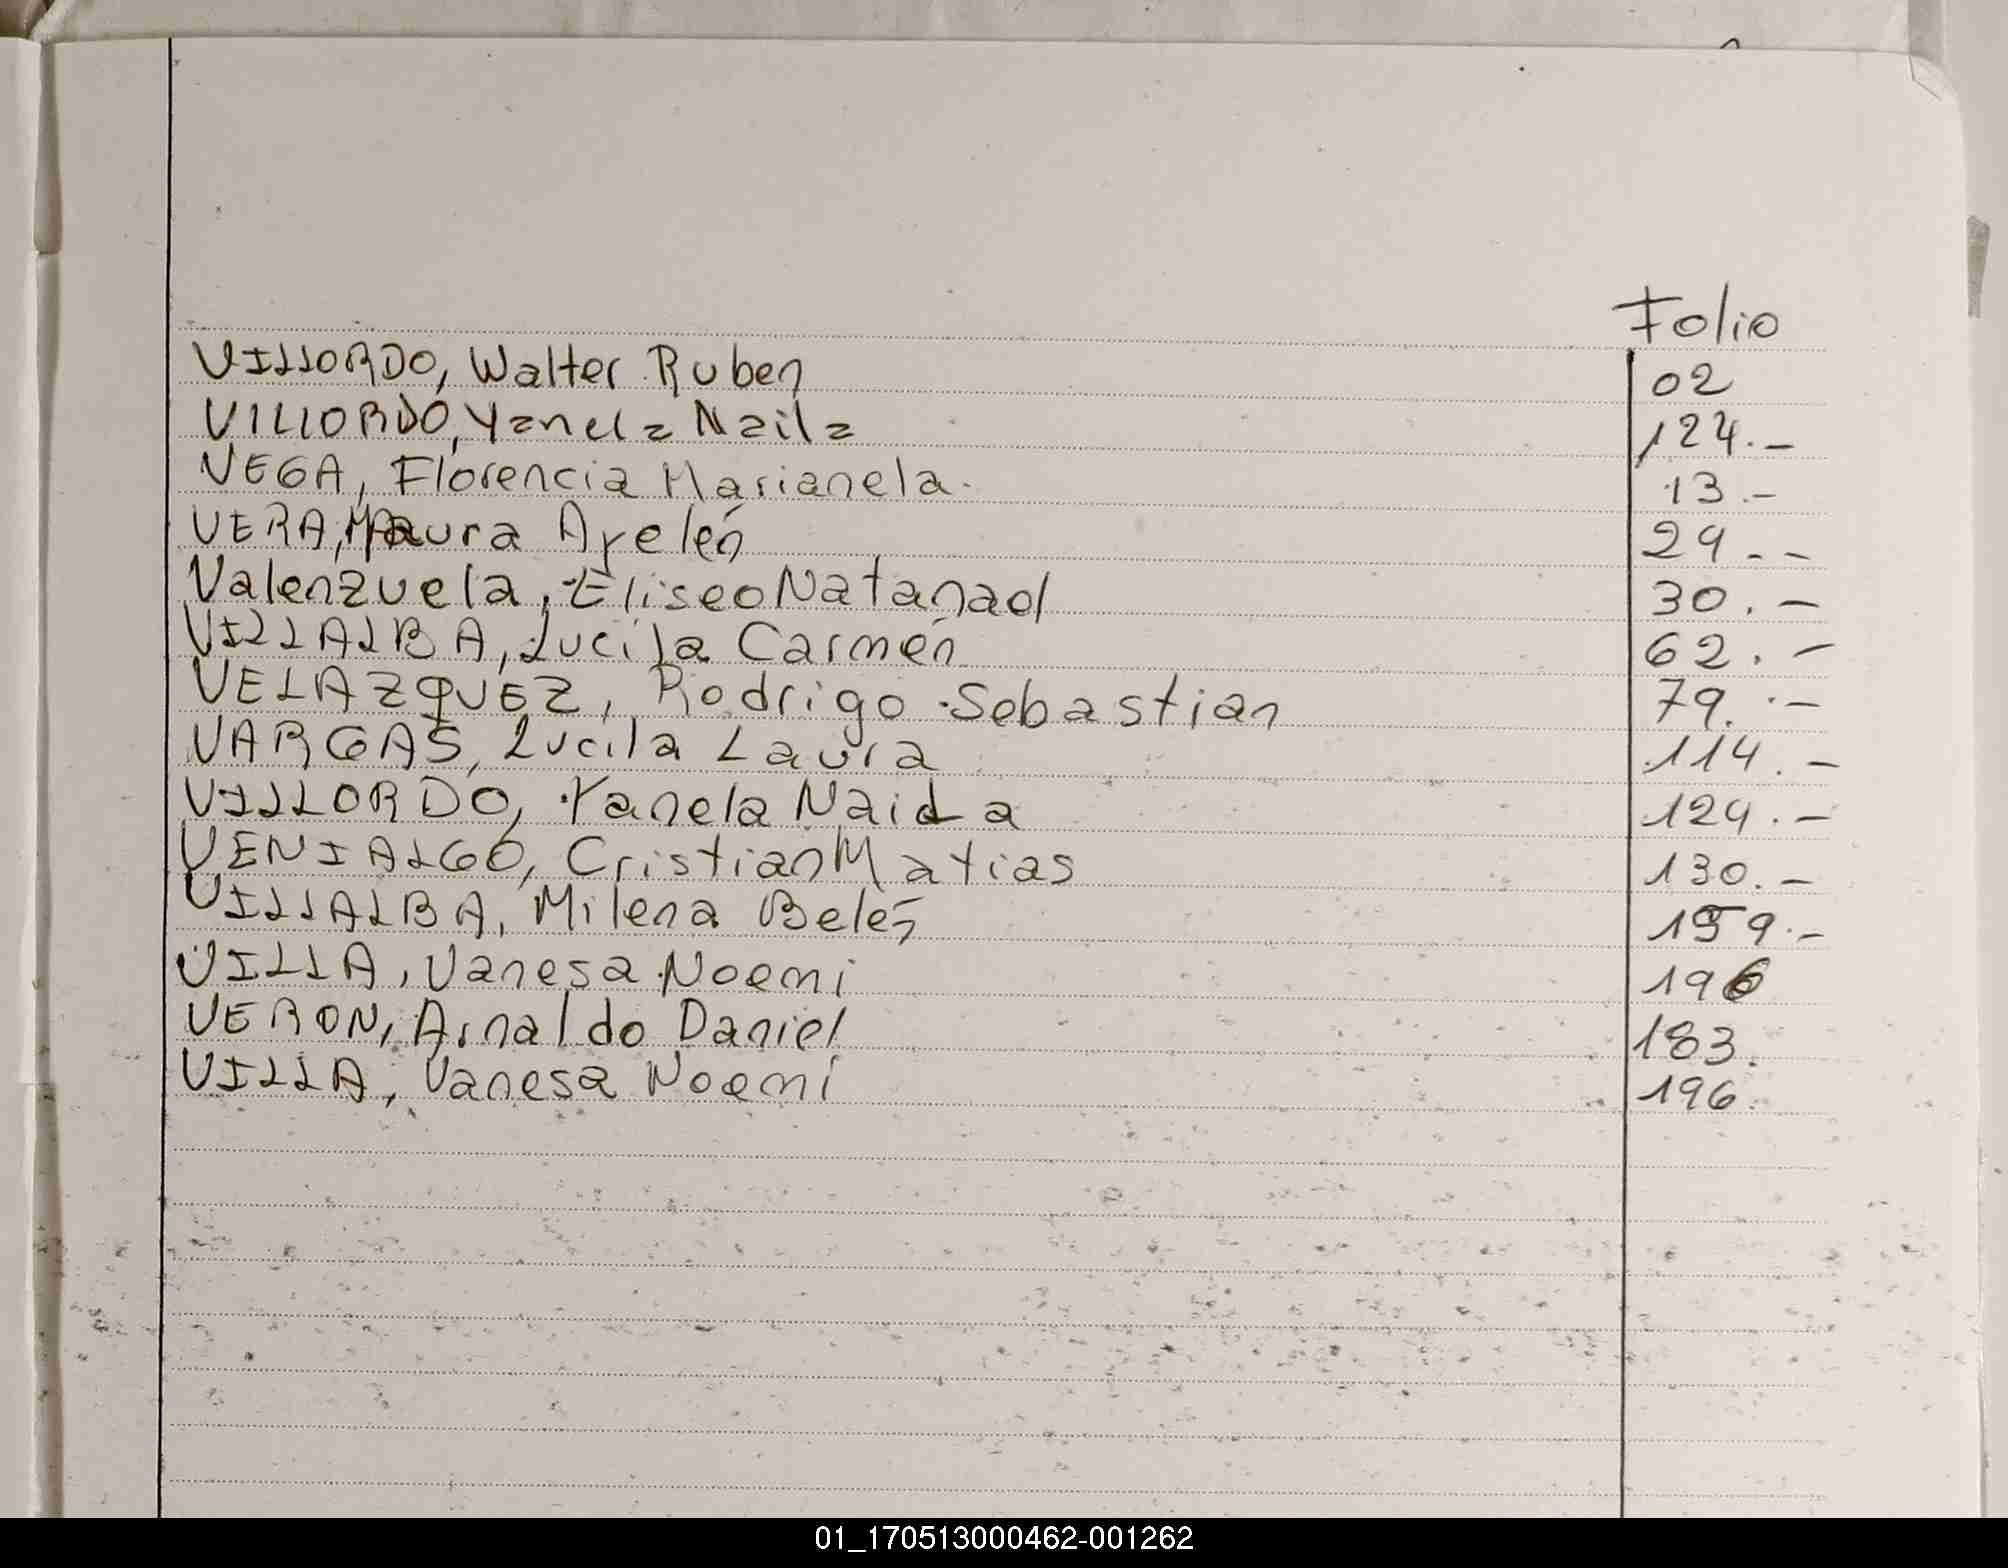 Folio
VILLORDO, Walter Ruben 02
VILLORDO, Yanela Naila 124.-
VEGA, Florencia Marianela. 13.-
VERA, Maura Ayelén 29.--
Valenzuela, Eliseo Natanael 30.-
VILLALBA, Lucila Carmen 62.-
VELAZQUEZ, Rodrigo Sebastian 79.-
VARGAS, Lucila Laura 114.-
VILLORDO, Yanela Naida 124.-
VENIALGO, Cristian Matias 130.-
VILLALBA, Milena Belén 159.-
VILLA, Vanesa Noemi 196
VERON, Arnaldo Daniel 183.
VILLA, Vanesa Noemí 196.
01_170513000462-001262